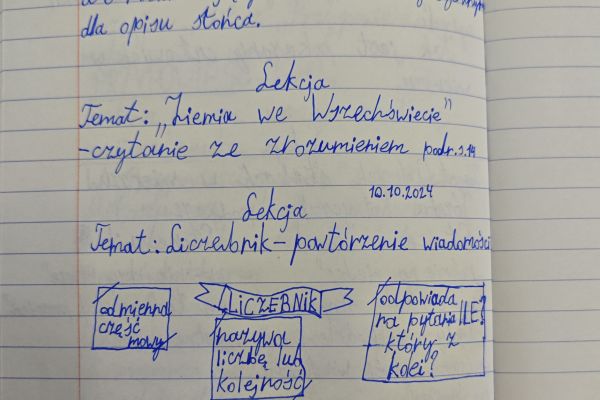 dla opisu słońca.
Lekcja
Temat: „Ziemia we Wszechświecie"
-czytanie ze zrozumieniem podr.s.14
10.10.2024
Lekcja
Temat: Liczebnik - powtórzenie wiadomości
odmienna
część
mowy
LICZEBNIK
nazywa
liczbę lub
kolejność
odpowiada
na pytania ILE?
który z
kolei?